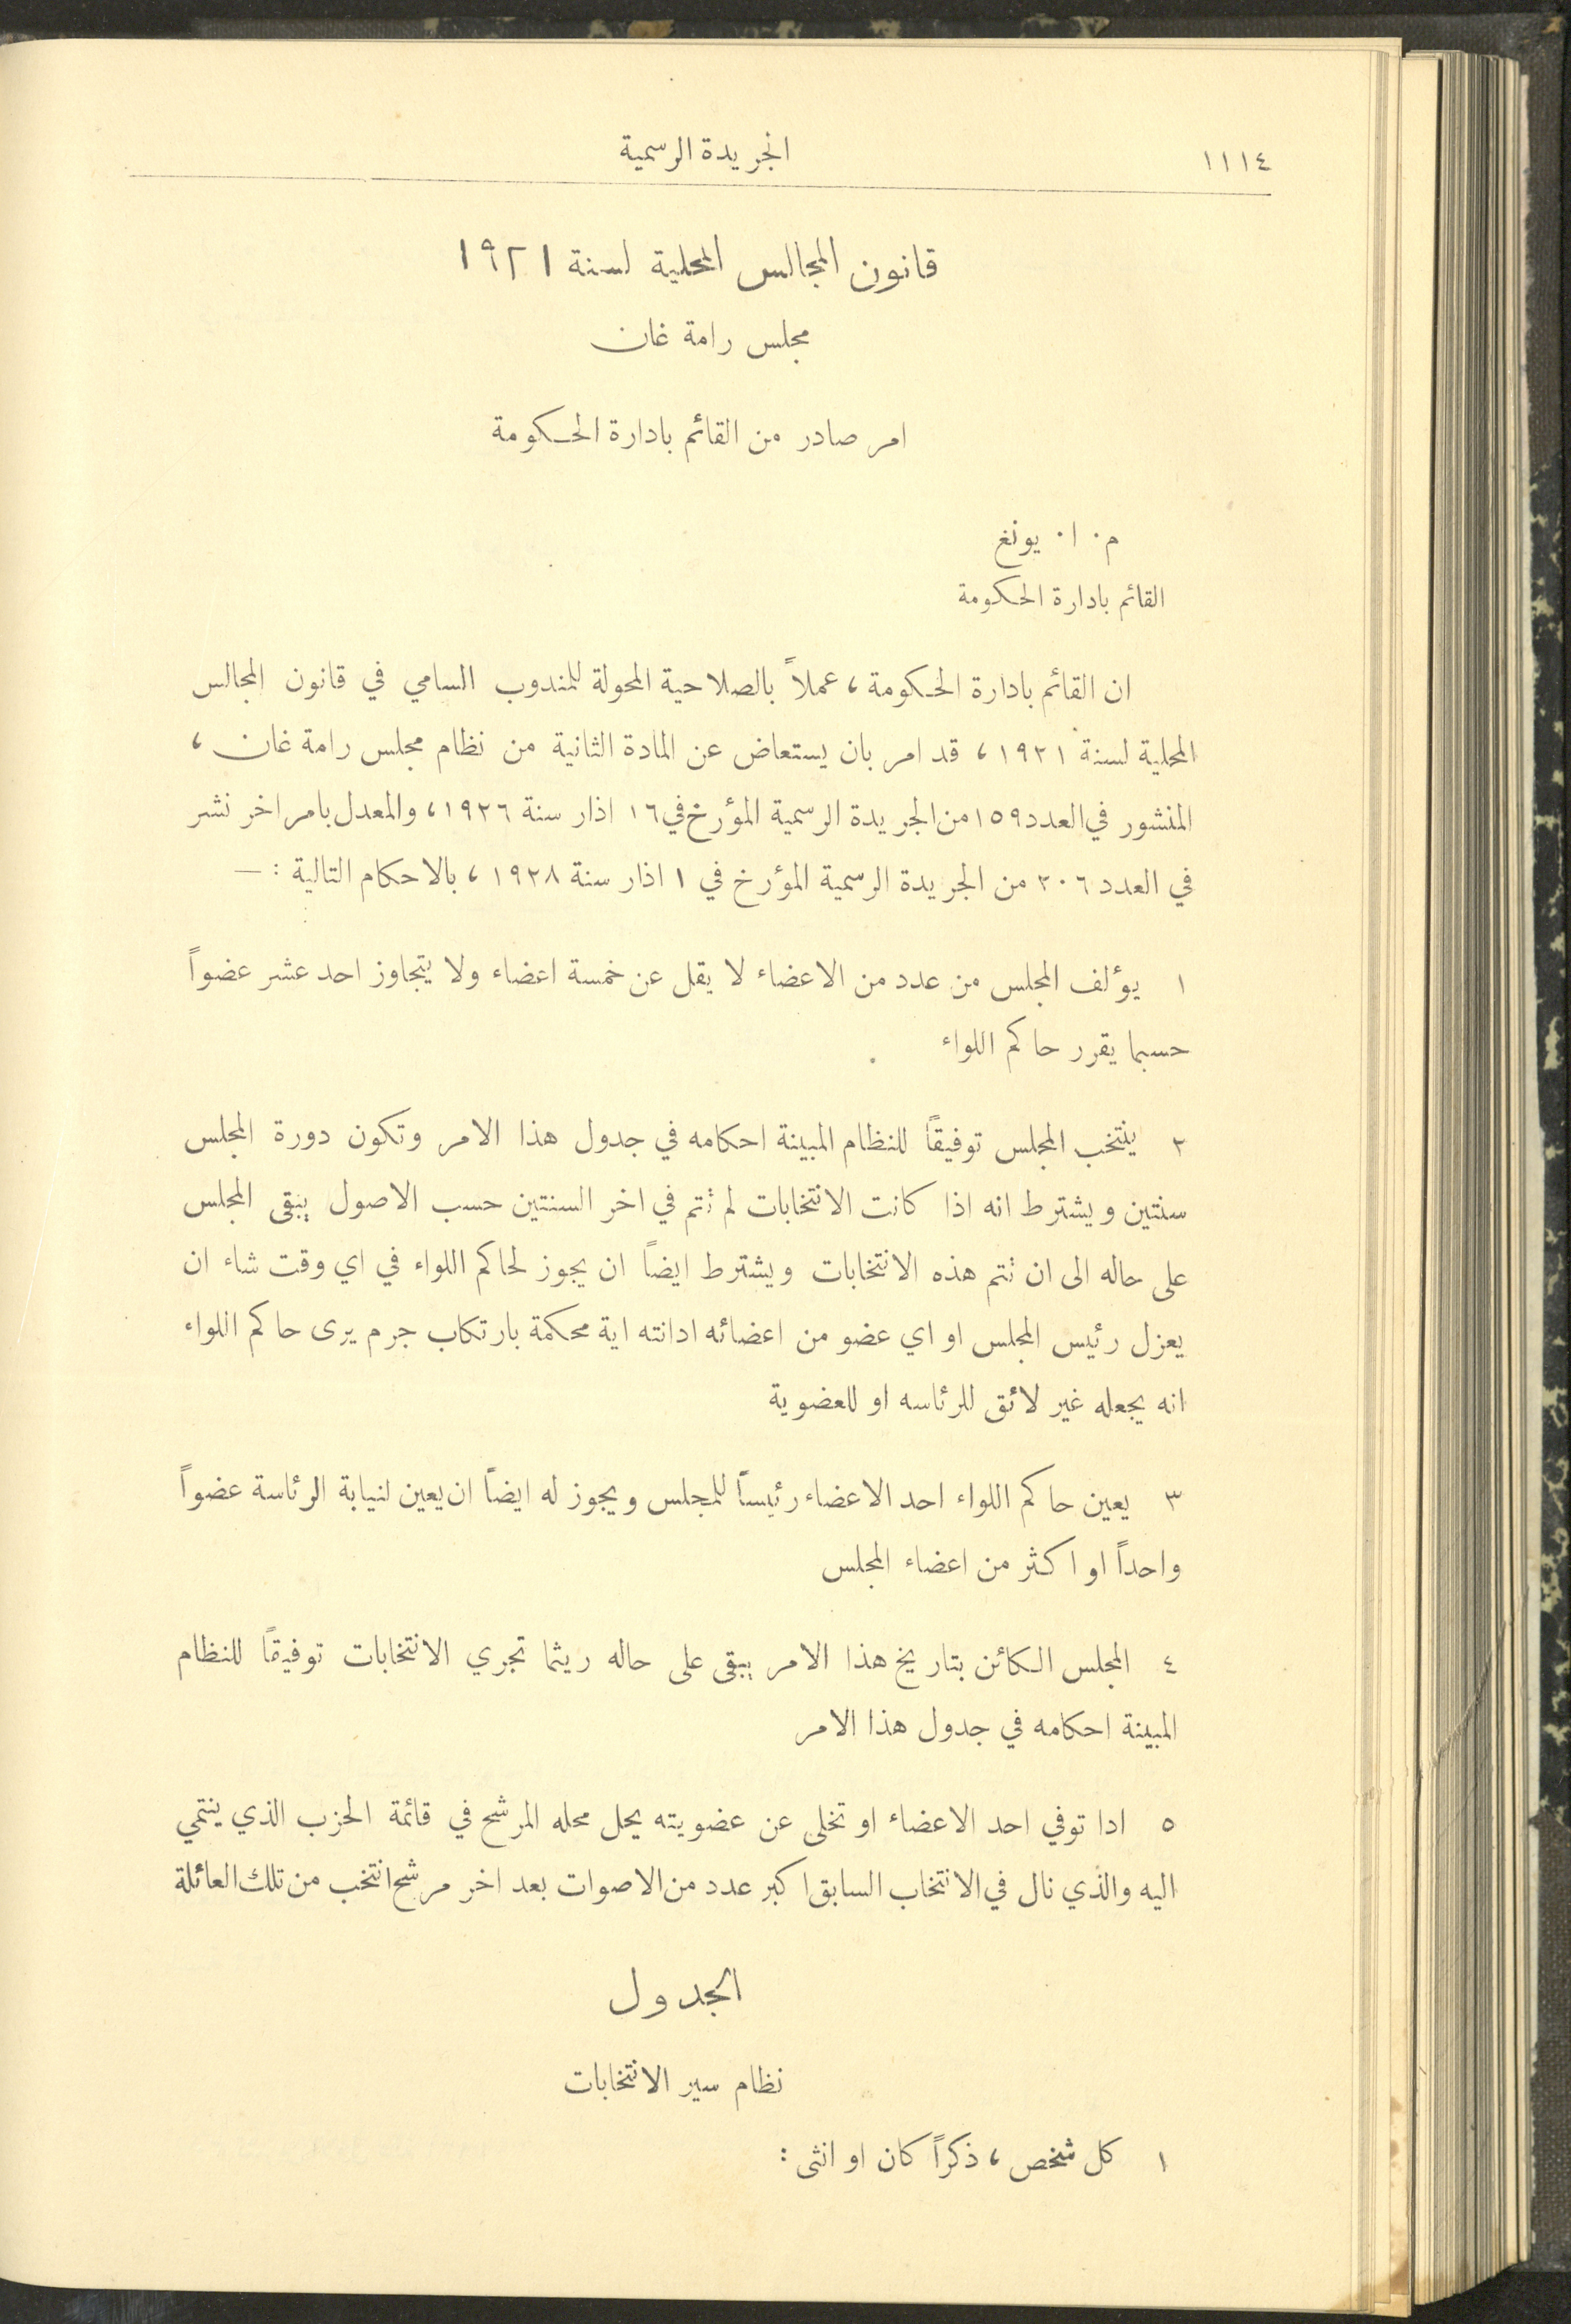 ١١١٤
الجريدة الرسمية
قانون المجالس المحلية لسنة ١٩٢١
مجلس رامة غان
امر صادر من القائم بادارة الحكومة
م. ا. يونغ
القائم بادارة الحكومة
ان القائم بادارة الحكومة، عملاً بالصلاحية المحولة للمندوب السامي في قانون المجالس
المحلية لسنة ١٩٢١، قد امر بان يستعاض عن المادة الثانية من نظام مجلس رامة غان،
المنشور في العدد ١٥٩ من الجريدة الرسمية المؤرخ في ١٦ اذار سنة ١٩٢٦، والمعدل بامر اخر نشر
في العدد ٢٠٦ من الجريدة الرسمية المؤرخ في ١ اذار سنة ١٩٢٨، بالاحكام التالية: —
١ يؤلف المجلس من عدد من الاعضاء لا يقل عن خمسة اعضاء ولا يتجاوز احد عشر عضواً
حسبما يقرر حاكم اللواء
٢ ينتخب المجلس توفيقاً للنظام المبينة احكامه في جدول هذا الامر وتكون دورة المجلس
سنتين ويشترط انه اذا كانت الانتخابات لم تتم في اخر السنتين حسب الاصول يبقى المجلس
على حاله الى ان تتم هذه الانتخابات ويشترط ايضاً ان يجوز لحاكم اللواء في اي وقت شاء ان
يعزل رئيس المجلس او اي عضو من اعضائه ادانته اية محكمة بارتكاب جرم يرى حاكم اللواء
انه يجعله غير لائق للرئاسه او للعضوية
٣ يعين حاكم اللواء احد الاعضاء رئيساً للمجلس ويجوز له ايضاً ان يعين لنيابة الرئاسة عضواً
واحداً او اكثر من اعضاء المجلس
٤ المجلس الكائن بتاريخ هذا الامر يبقى على حاله ريثما تجري الانتخابات توفيقاً للنظام
المبينة احكامه في جدول هذا الامر
٥ ادا توفي احد الاعضاء او تخلى عن عضويته يحل محله المرشح في قائمة الحزب الذي ينتمي
اليه والذي نال في الانتخاب السابق اكبر عدد من الاصوات بعد اخر مرشح انتخب من تلك العائلة
الجدول
نظام سير الانتخابات
١ كل شخص، ذكراً كان او انثى: